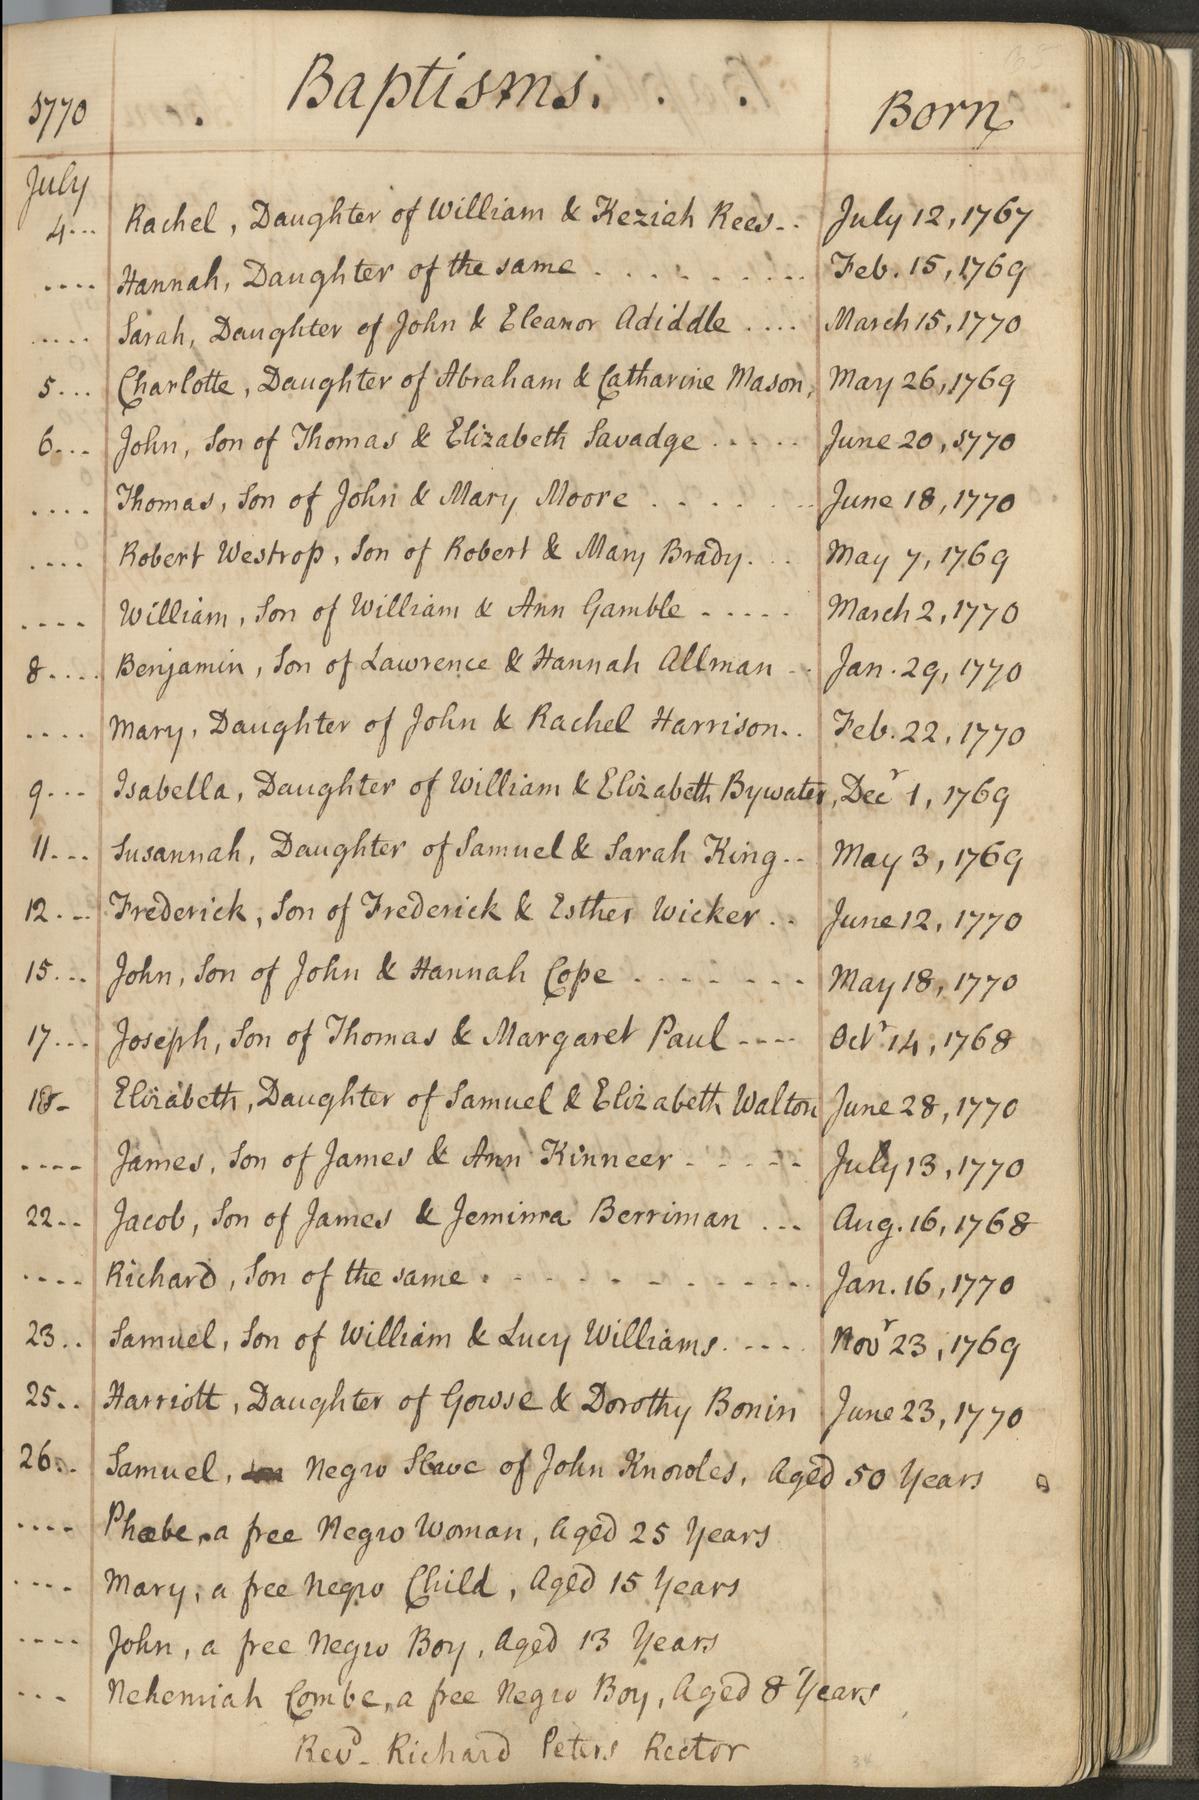 1770 Baptisms. . . Born
July
4... Rachel, Daughter of William & Keziah Rees.. July 12, 1767
.... Hannah, Daughter of the same . . . . . . . . . Feb. 15, 1769
..... Sarah, Daughter of John & Eleanor Adiddle .... March 15, 1770
5... Charlotte, Daughter of Abraham & Catharine Mason, May 26, 1769
6... John, Son of Thomas & Elizabeth Savadge ..... June 20, 1770
.... Thomas, Son of John & Mary Moore . . . . . . . June 18, 1770
.... Robert Westrop, Son of Robert & Mary Brady. .. May 7, 1769
.... William, Son of William & Ann Gamble ..... March 2, 1770
8.... Benjamin, Son of Lawrence & Hannah Allman .. Jan. 29, 1770
.... Mary, Daughter of John & Rachel Harrison.. Feb. 22, 1770
9... Isabella, Daughter of William & Elizabeth Bywater, Decr 1, 1769
11... Susannah, Daughter of Samuel & Sarah King.. May 3, 1769
12... Frederick, Son of Frederick & Esther Wicker .. June 12, 1770
15... John, Son of John & Hannah Cope ....... May 18, 1770
17... Joseph, Son of Thomas & Margaret Paul .... Octr 14, 1768
18- Elizabeth, Daughter of Samuel & Elizabeth Walton June 28, 1770
.... James, Son of James & Ann Kinneer ..... July 13, 1770
22.. Jacob, Son of James & Jemima Berriman ... Aug. 16, 1768
.... Richard, Son of the same . . . . . . . . . . . Jan. 16, 1770
23.. Samuel, Son of William & Lucy Williams. .... Novr 23, 1769
25.. Harriott, Daughter of Gowse & Dorothy Bonin June 23, 1770
26.. Samuel, Negro Slave of John Knowles, Aged 50 Years
.... Phœbe, a free Negro Woman, Aged 25 Years
.... Mary, a free Negro Child, Aged 15 Years
.... John, a free Negro Boy, Aged 13 Years
... Nehemiah Combe, a free Negro Boy, Aged 8 Years
Revd. Richard Peters Rector
34